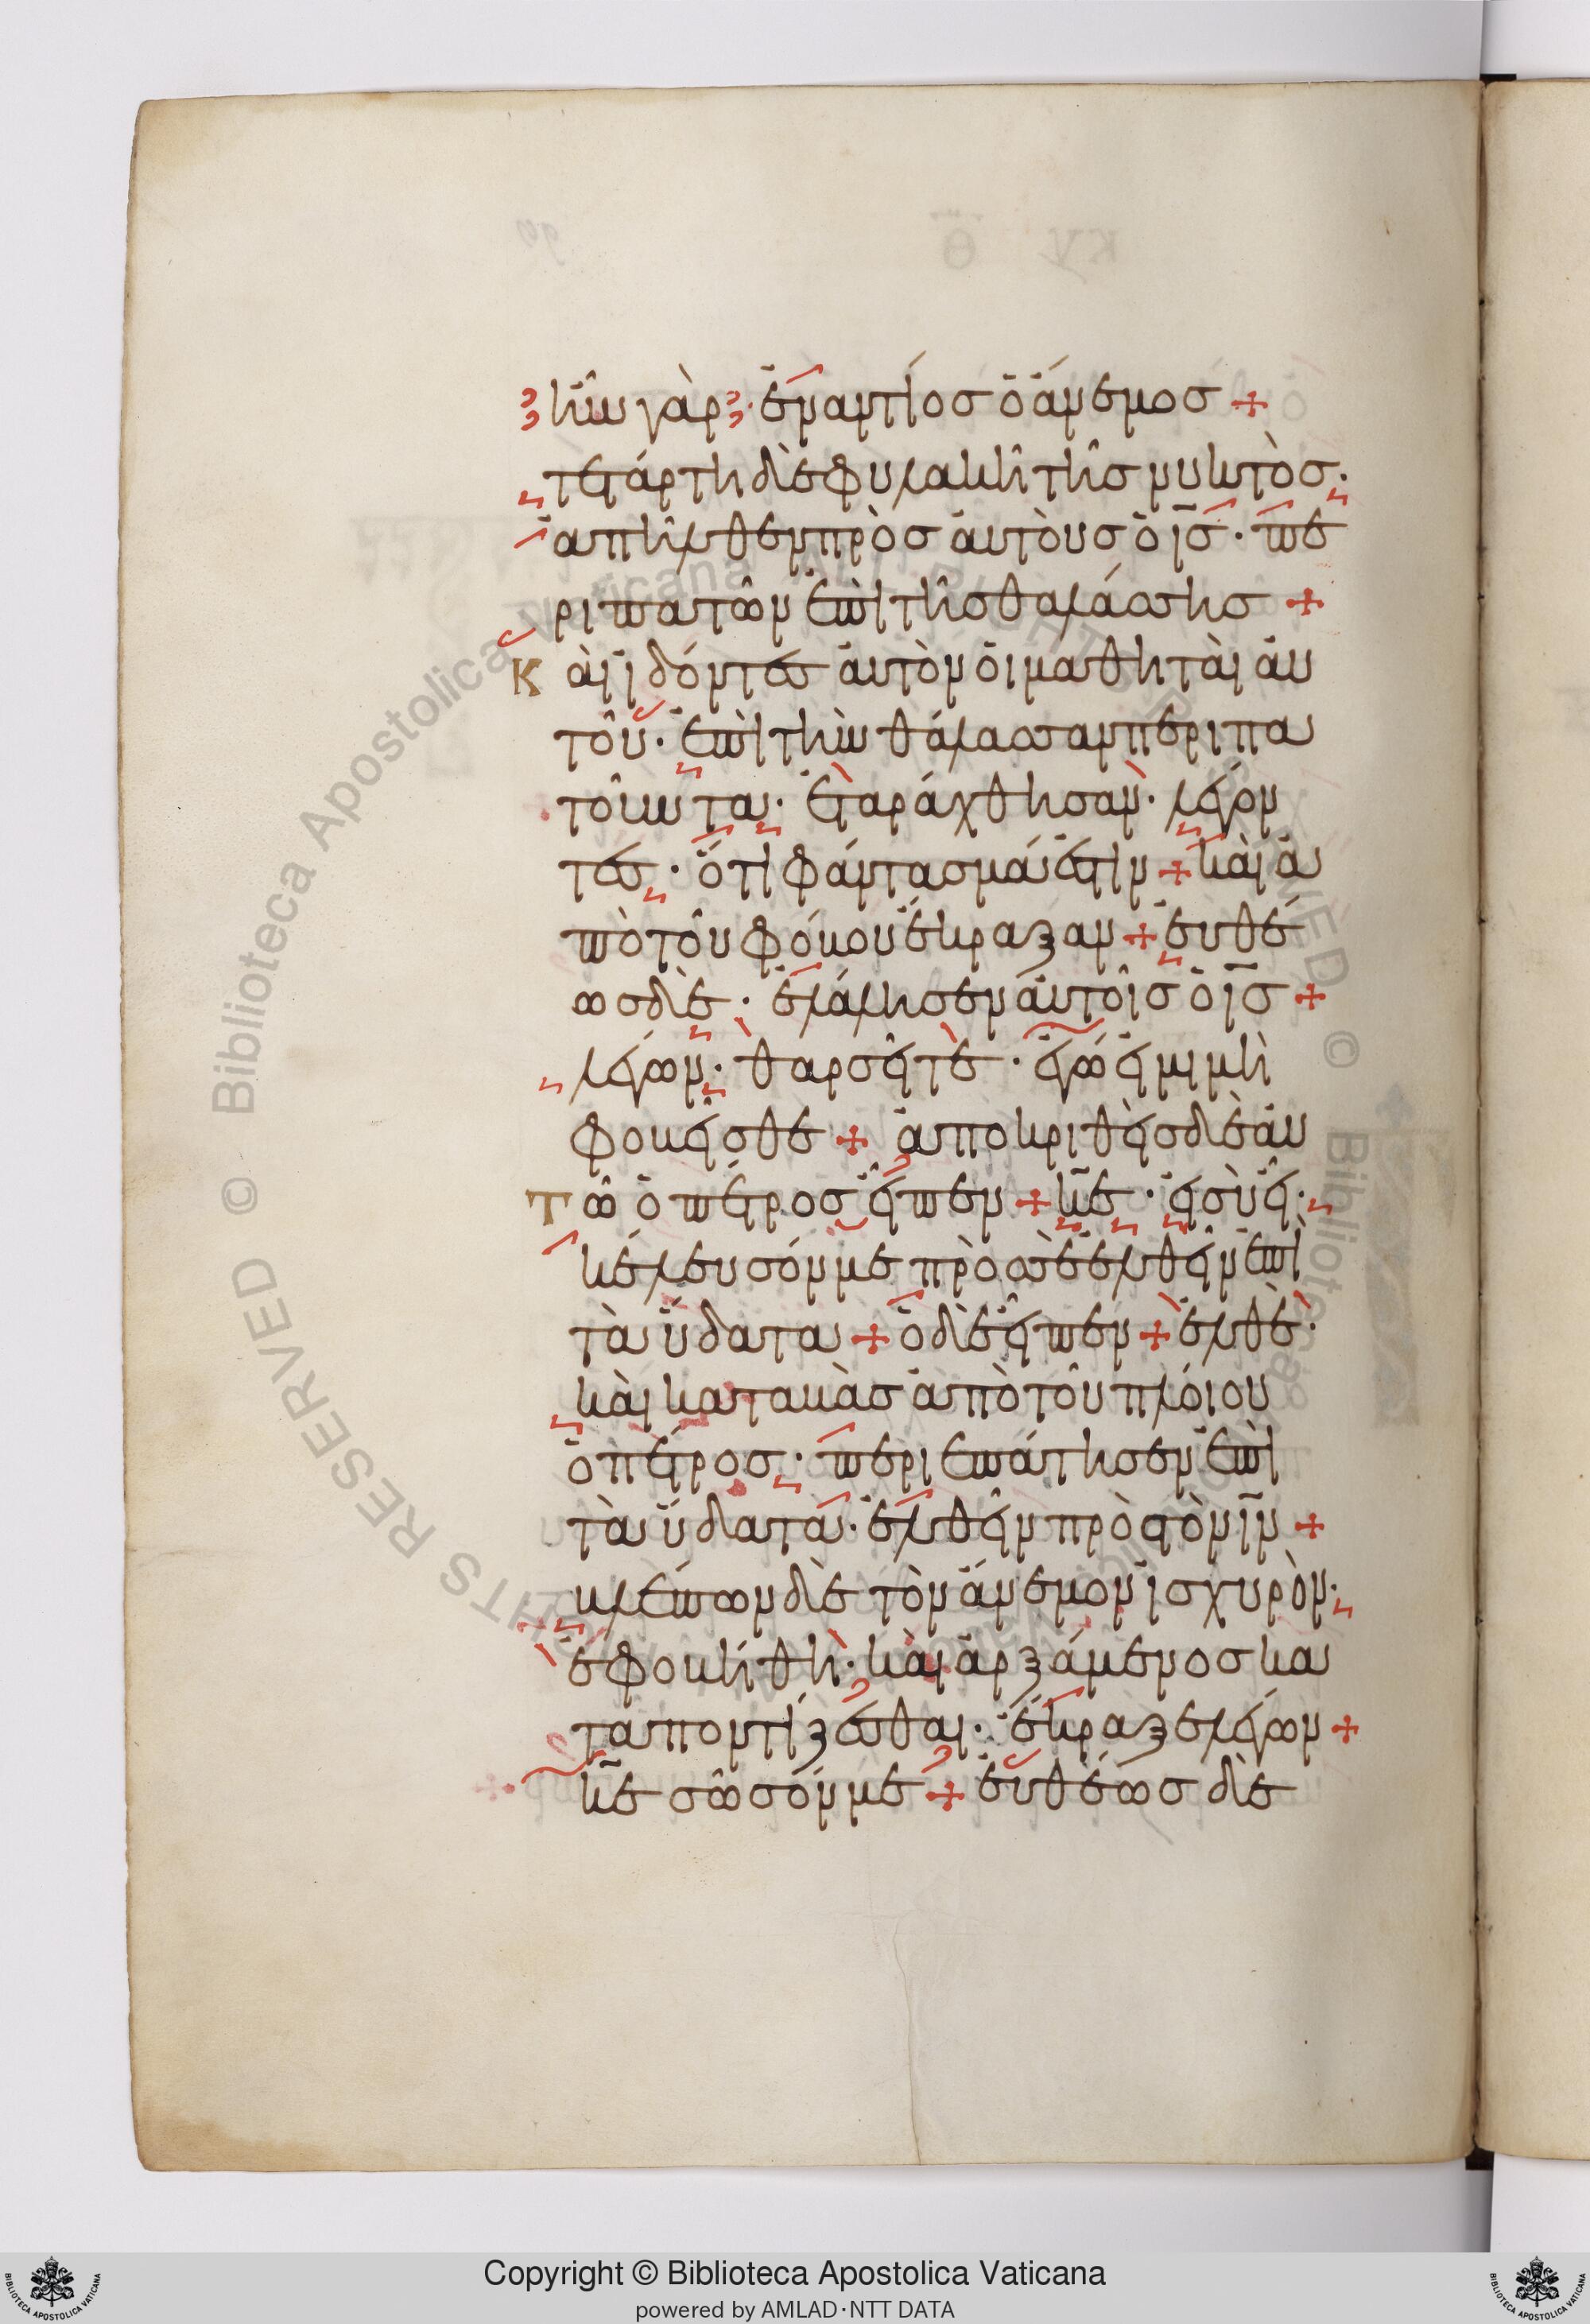 ἦν γὰρ· ἐναντίος ὁ ἄνεμος +
τετάρτη δὲ φυλακῆ τῆς νυκτὸς·
ἀπῆλθεν πρὸς ἀυτὸυς ὁ ις̅· πε
ριπατῶν ἐπὶ τῆς θαλάσσης +
Κὰι ἰδόντες ἀυτὸν ὁι μαθητὰι ἀυ
τοῦ· ἐπὶ τὴν θάλασσαν περιπα
τοῦντα· ἐταράχθησαν· λέγον
τες· ὅτι φάντασμά ἐστιν + κὰι ἀ
πὸ τοῦ φόβου ἔκραξαν + ἐυθέ
ως δὲ· ἐλάλησεν ἀυτοῖς ὁ ις̅ +
λέγων· θαρσεῖτε· ἐγώ ἐιμι μὴ
φοβεῖσθε + ἀποκριθὲις δὲ ἀυ
Τῶ ὁ πέτρος εἶπεν + κε̅· ἐι σὺ εἶ·
κέλευσόν με πρὸς σὲ ἐλθεῖν ἐπὶ
τὰ ὕδατα + ὁ δὲ εἶπεν + ἐλθὲ·
κὰι καταβὰς ἀπὸ τοῦ πλόιου
ὁ πέτρος· περιεπάτησεν ἐπὶ
τὰ ὕδατα· ἐλθεῖν πρὸς τὸν ιν̅ +
βλέπων δὲ τὸν ἄνεμον ἰσχυρὸν·
ἐφοβήθη· κὰι ἀρξάμενος κα
ταποντίζεσθαι· ἔκραξε λέγων +
κε̅ σῶσόν με + ἐυθέως δὲ
Copyright © Biblioteca Apostolica Vaticana
powered by AMLAD·NTT DATA